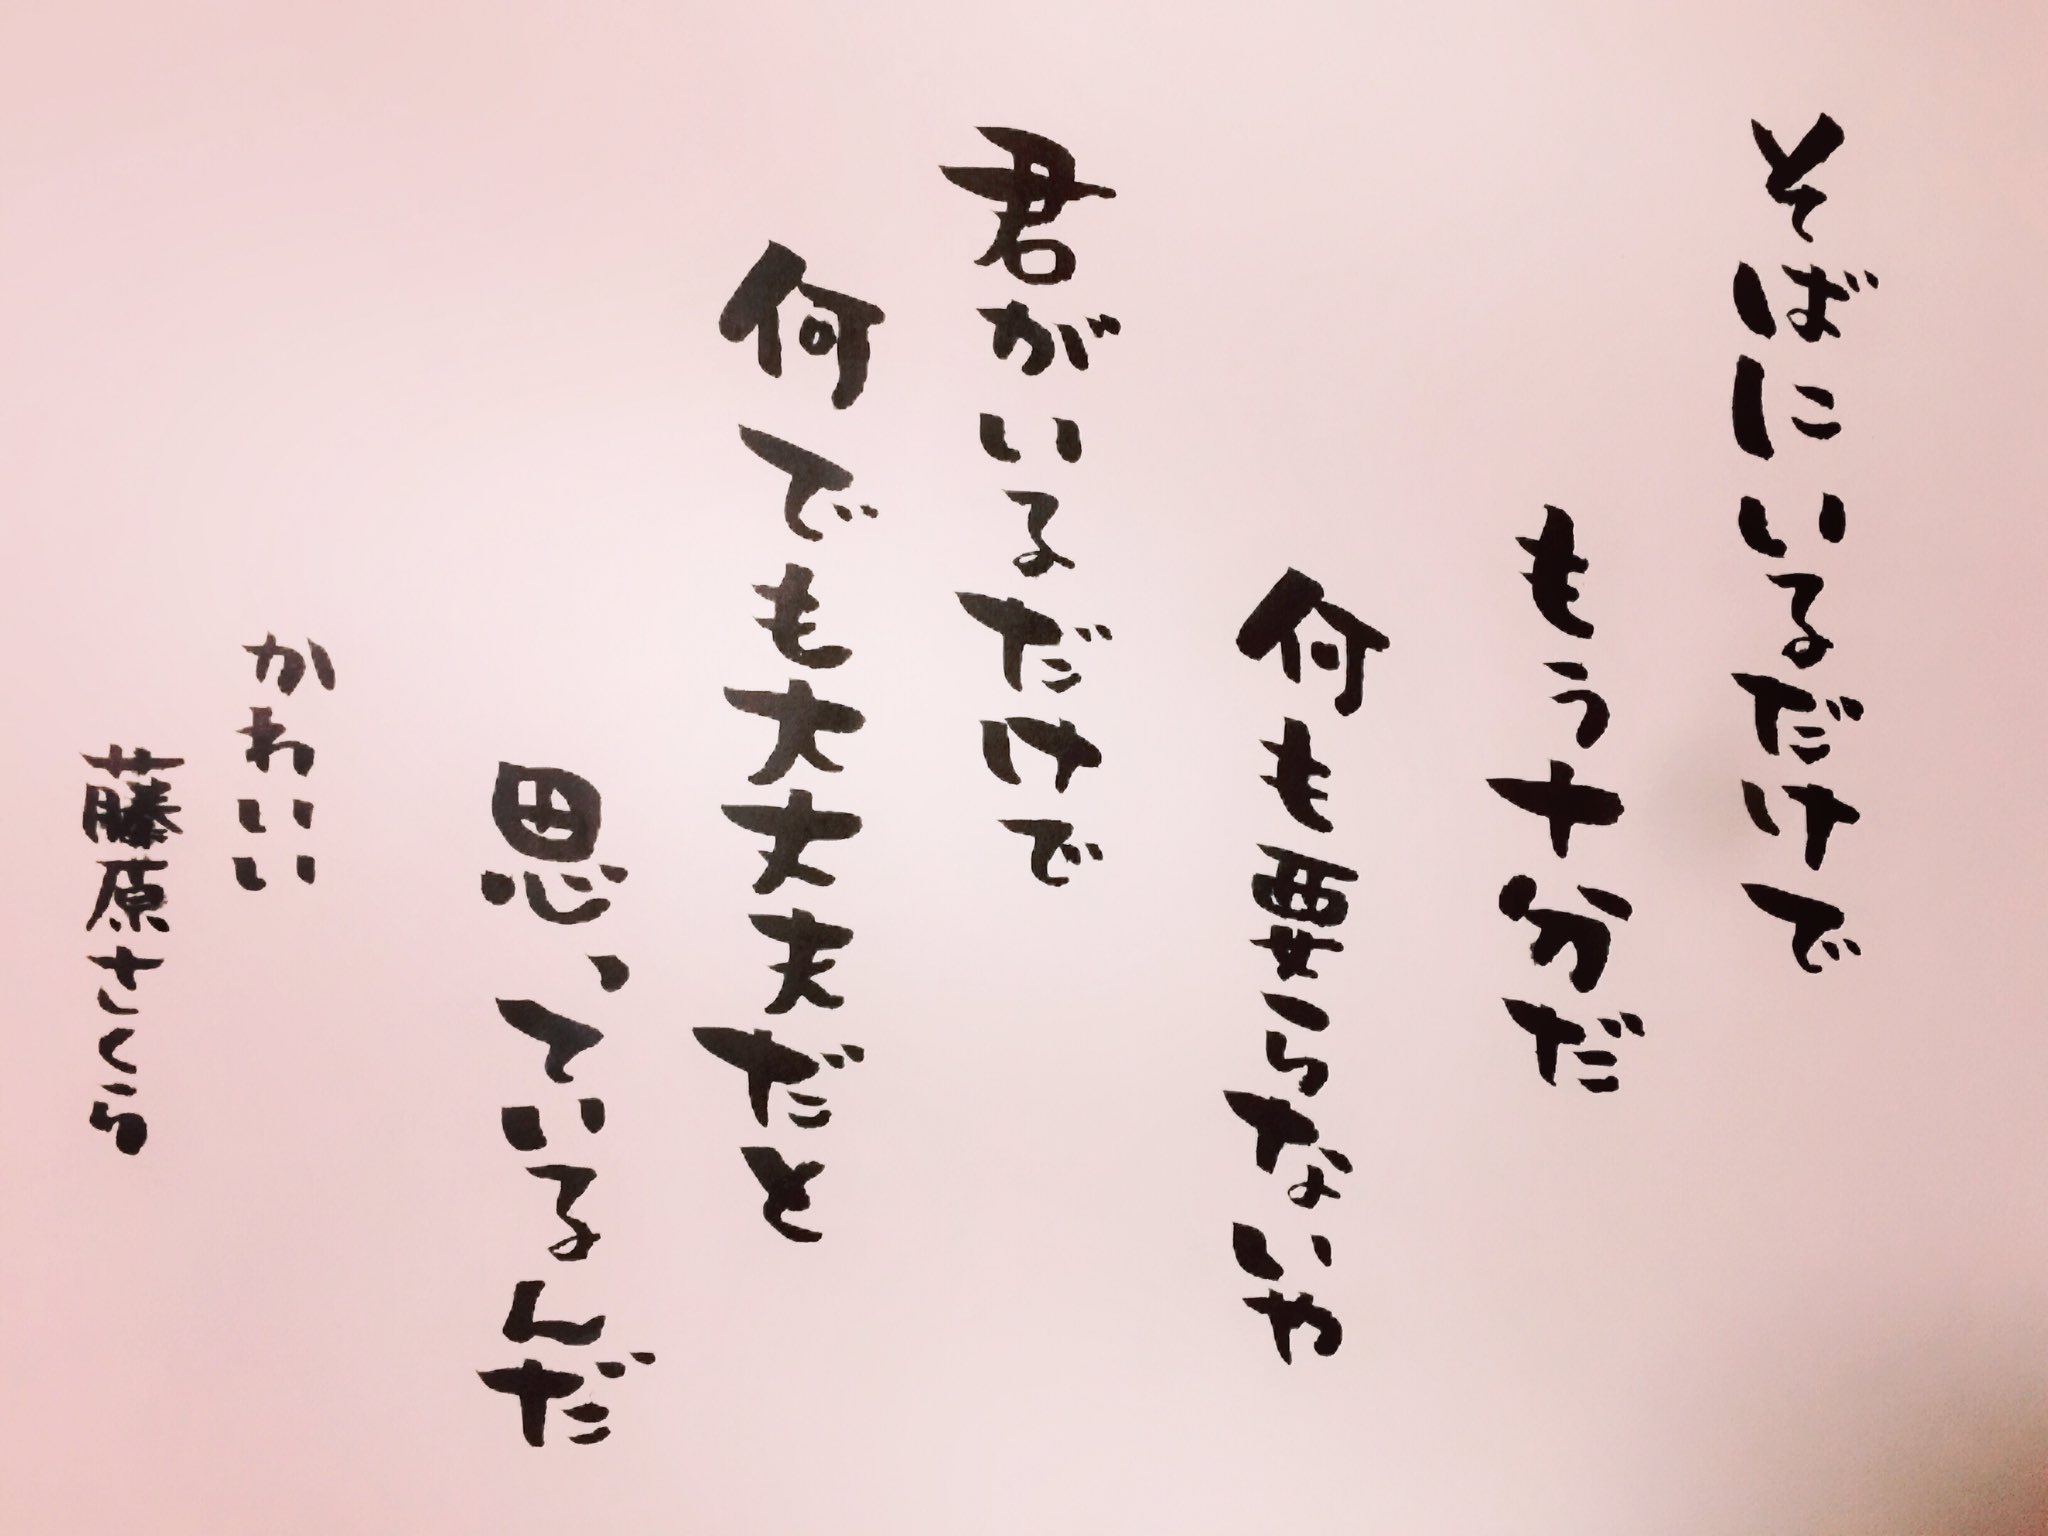 そばにいるだけで
もう十分だ
何も要らないや
君がいるだけで
何でも大丈夫だと
思っているんだ
かわいい
藤原さくら